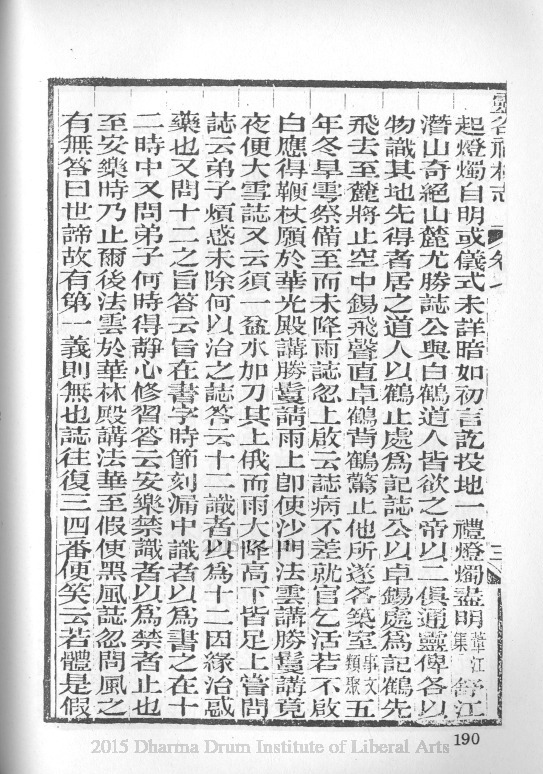 靈谷禪林志 卷七 三
起燈燭自明或儀式未詳暗如初言訖投地一禮燈燭盡明 舒江
潛山奇絕山麓尤勝誌公與白鶴道人皆欲之帝以二俱通靈俾各以
物識其地先得者居之道人以鶴止處爲記誌公以卓錫處爲記鶴先
飛去至麓將止空中錫飛聲直卓鶴背鶴驚止他所遂各築室事文類聚五
年冬旱雩祭備至而未降雨誌忽上啟云誌病不差就官乞活若不啟
白應得鞭杖願於華光殿講勝鬘請雨上卽使沙門法雲講勝鬘講竟
夜便大雪誌又云須一盆水加刀其上俄而雨大降高下皆足上嘗問
誌云弟子煩惑未除何以治之誌答云十二識者以爲十二因緣治惑
藥也又問十二之旨答云旨在書字時節刻漏中識者以爲書之在十
二時中又問弟子何時得靜心修習答云安樂禁識者以爲禁者止也
至安樂時乃止爾後法雲於華林殿講法華至假使黑風誌忽問風之
有無答曰世諦故有第一義則無也誌往復三四番便笑云若體是假
190
2015 Dharma Drum Institute of Liberal Arts